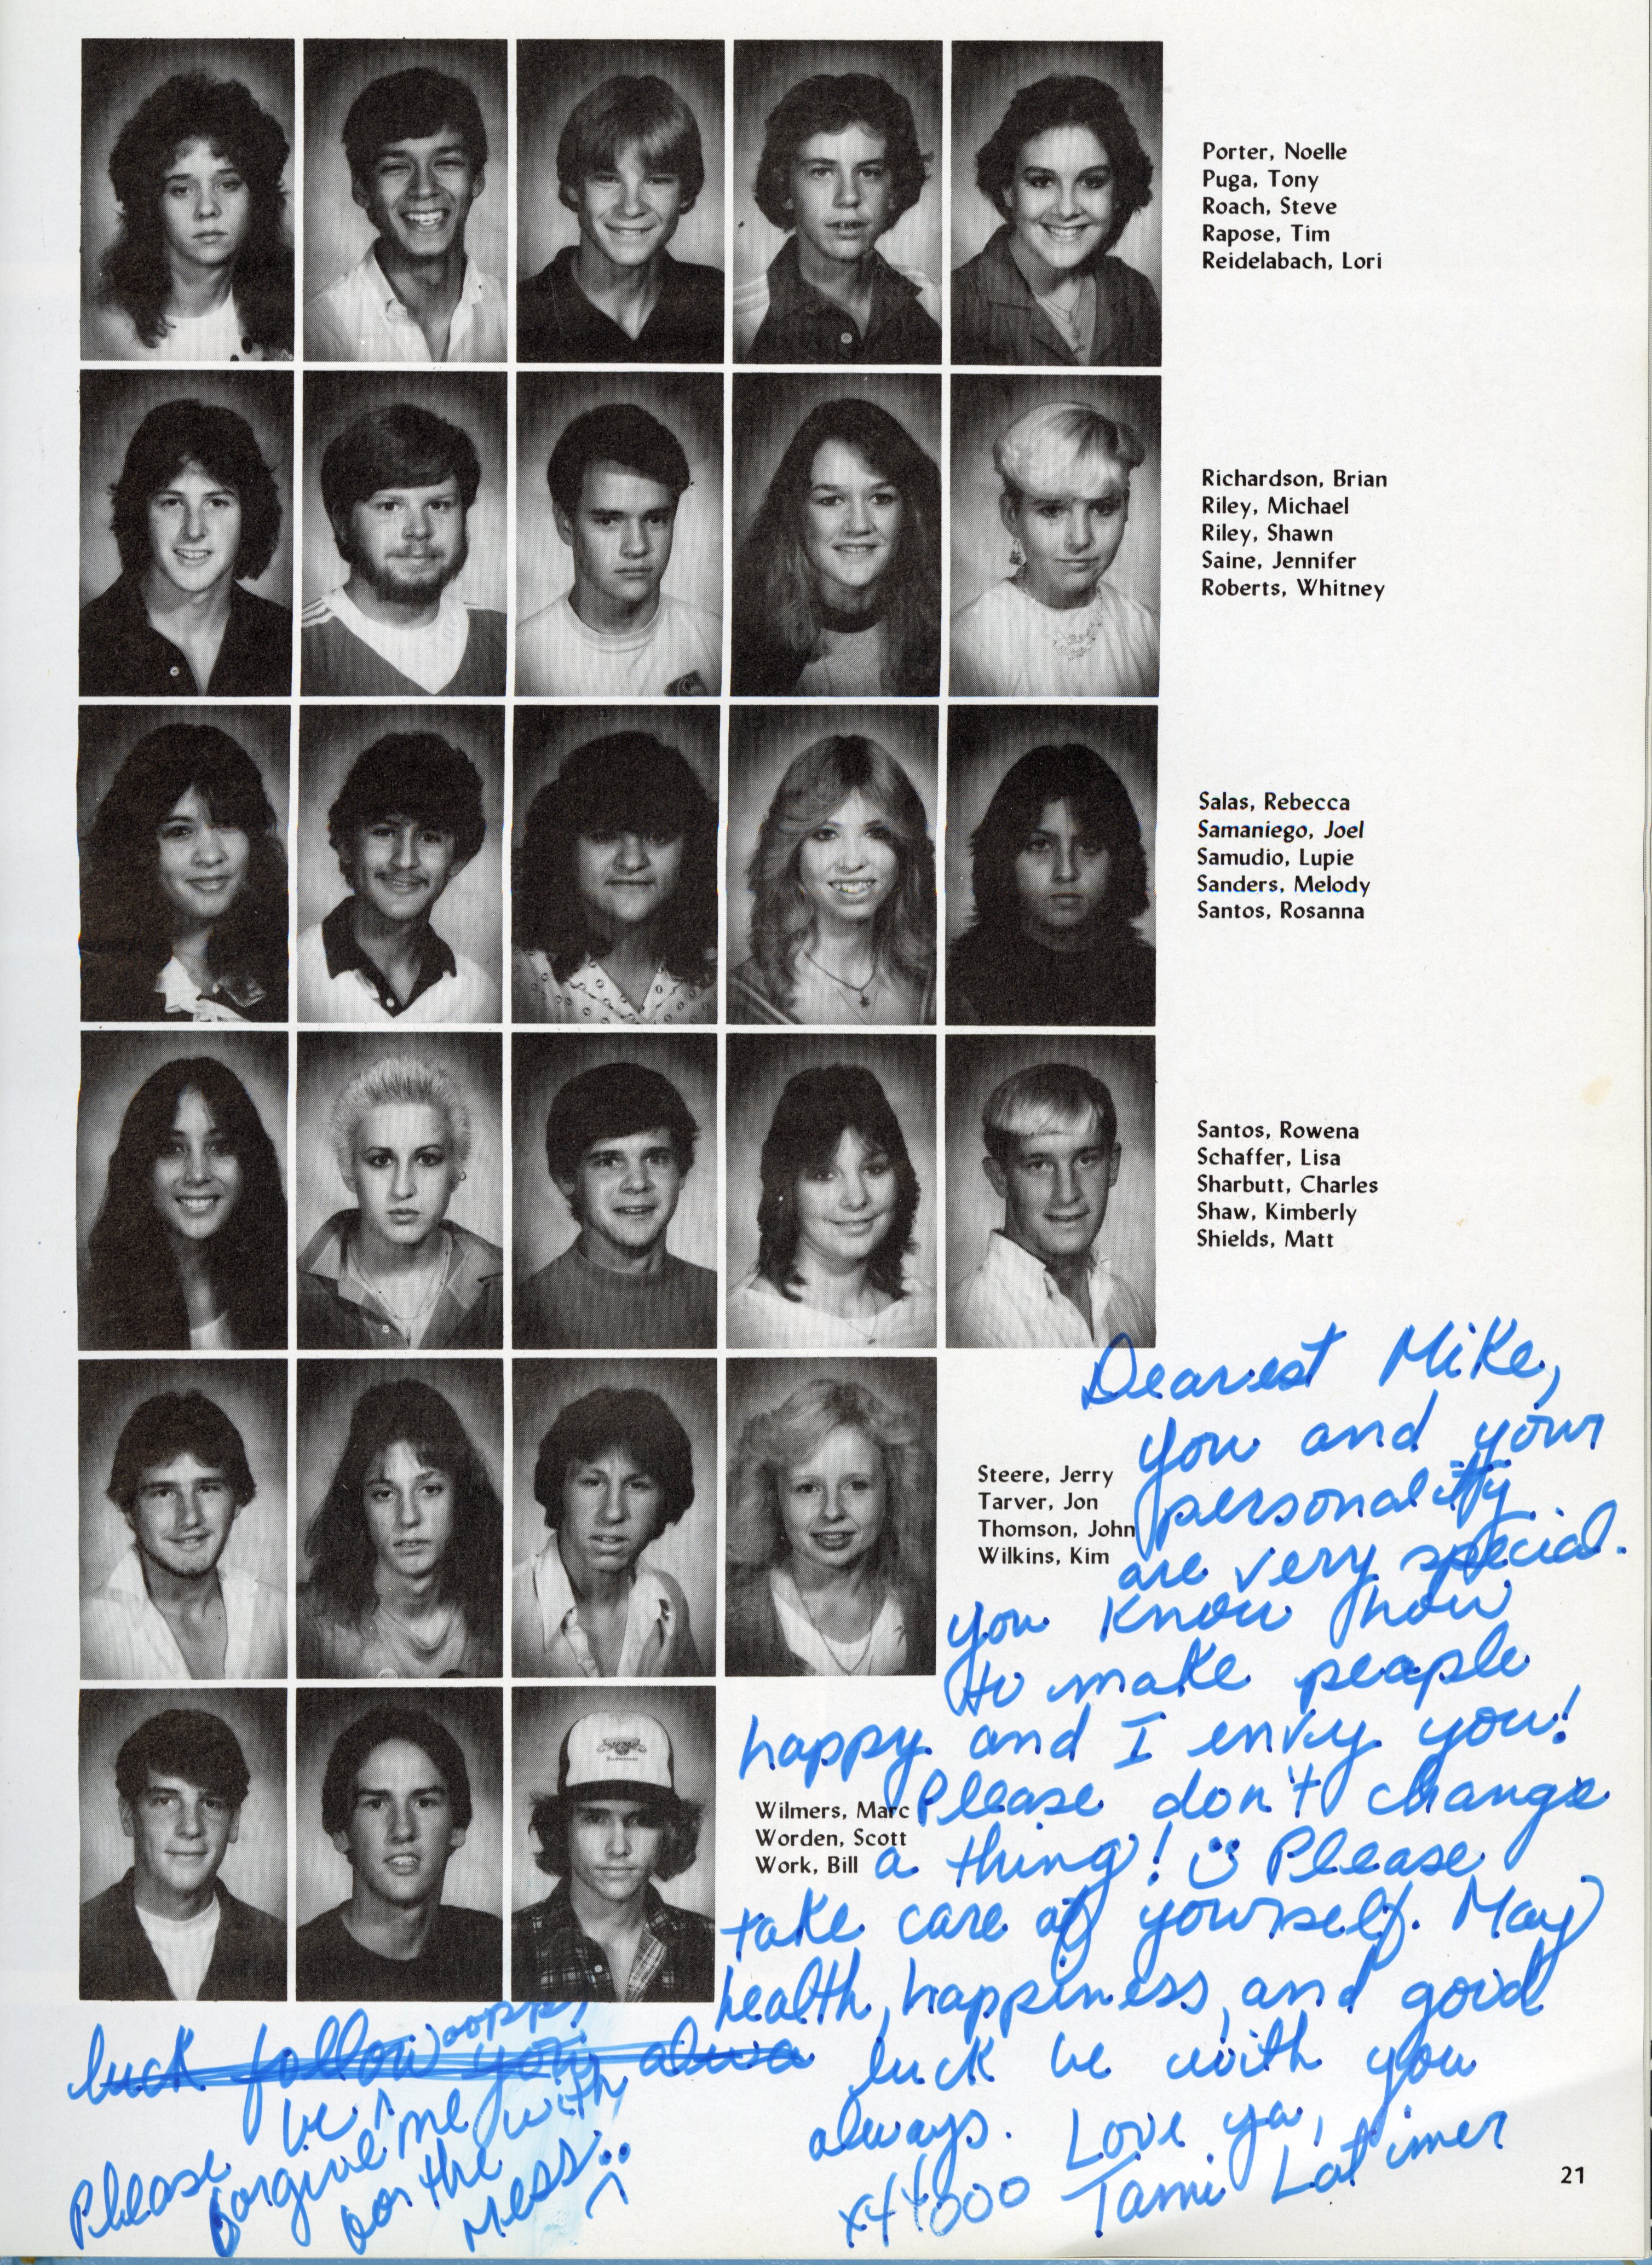 Porter, Noelle
Puga, Tony
Roach, Steve
Rapose, Tim
Reidelabach, Lori
Richardson, Brian
Riley, Michael
Riley, Shawn
Saine, Jennifer
Roberts, Whitney
Salas, Rebecca
Samaniego, Joel
Samudio, Lupie
Sanders, Melody
Santos, Rosanna
Santos, Rowena
Schaffer, Lisa
Sharbutt, Charles
Shaw, Kimberly
Shields, Matt
Steere, Jerry
Tarver, Jon
Thomson, John
Wilkins, Kim
Budweiser
Wilmers, Marc
Worden, Scott
Work, Bill
Dearest Mike,
you and your
personality
are very special.
you know how
to make people
happy and I envy you!
Please don't change
a thing! Please
take care of yourself. May
health, happiness, and good
luck follow you alwa luck be with you
oops,
be with
always. Love ya,
Tami Latimer
Please forgive me
for the
mess
21